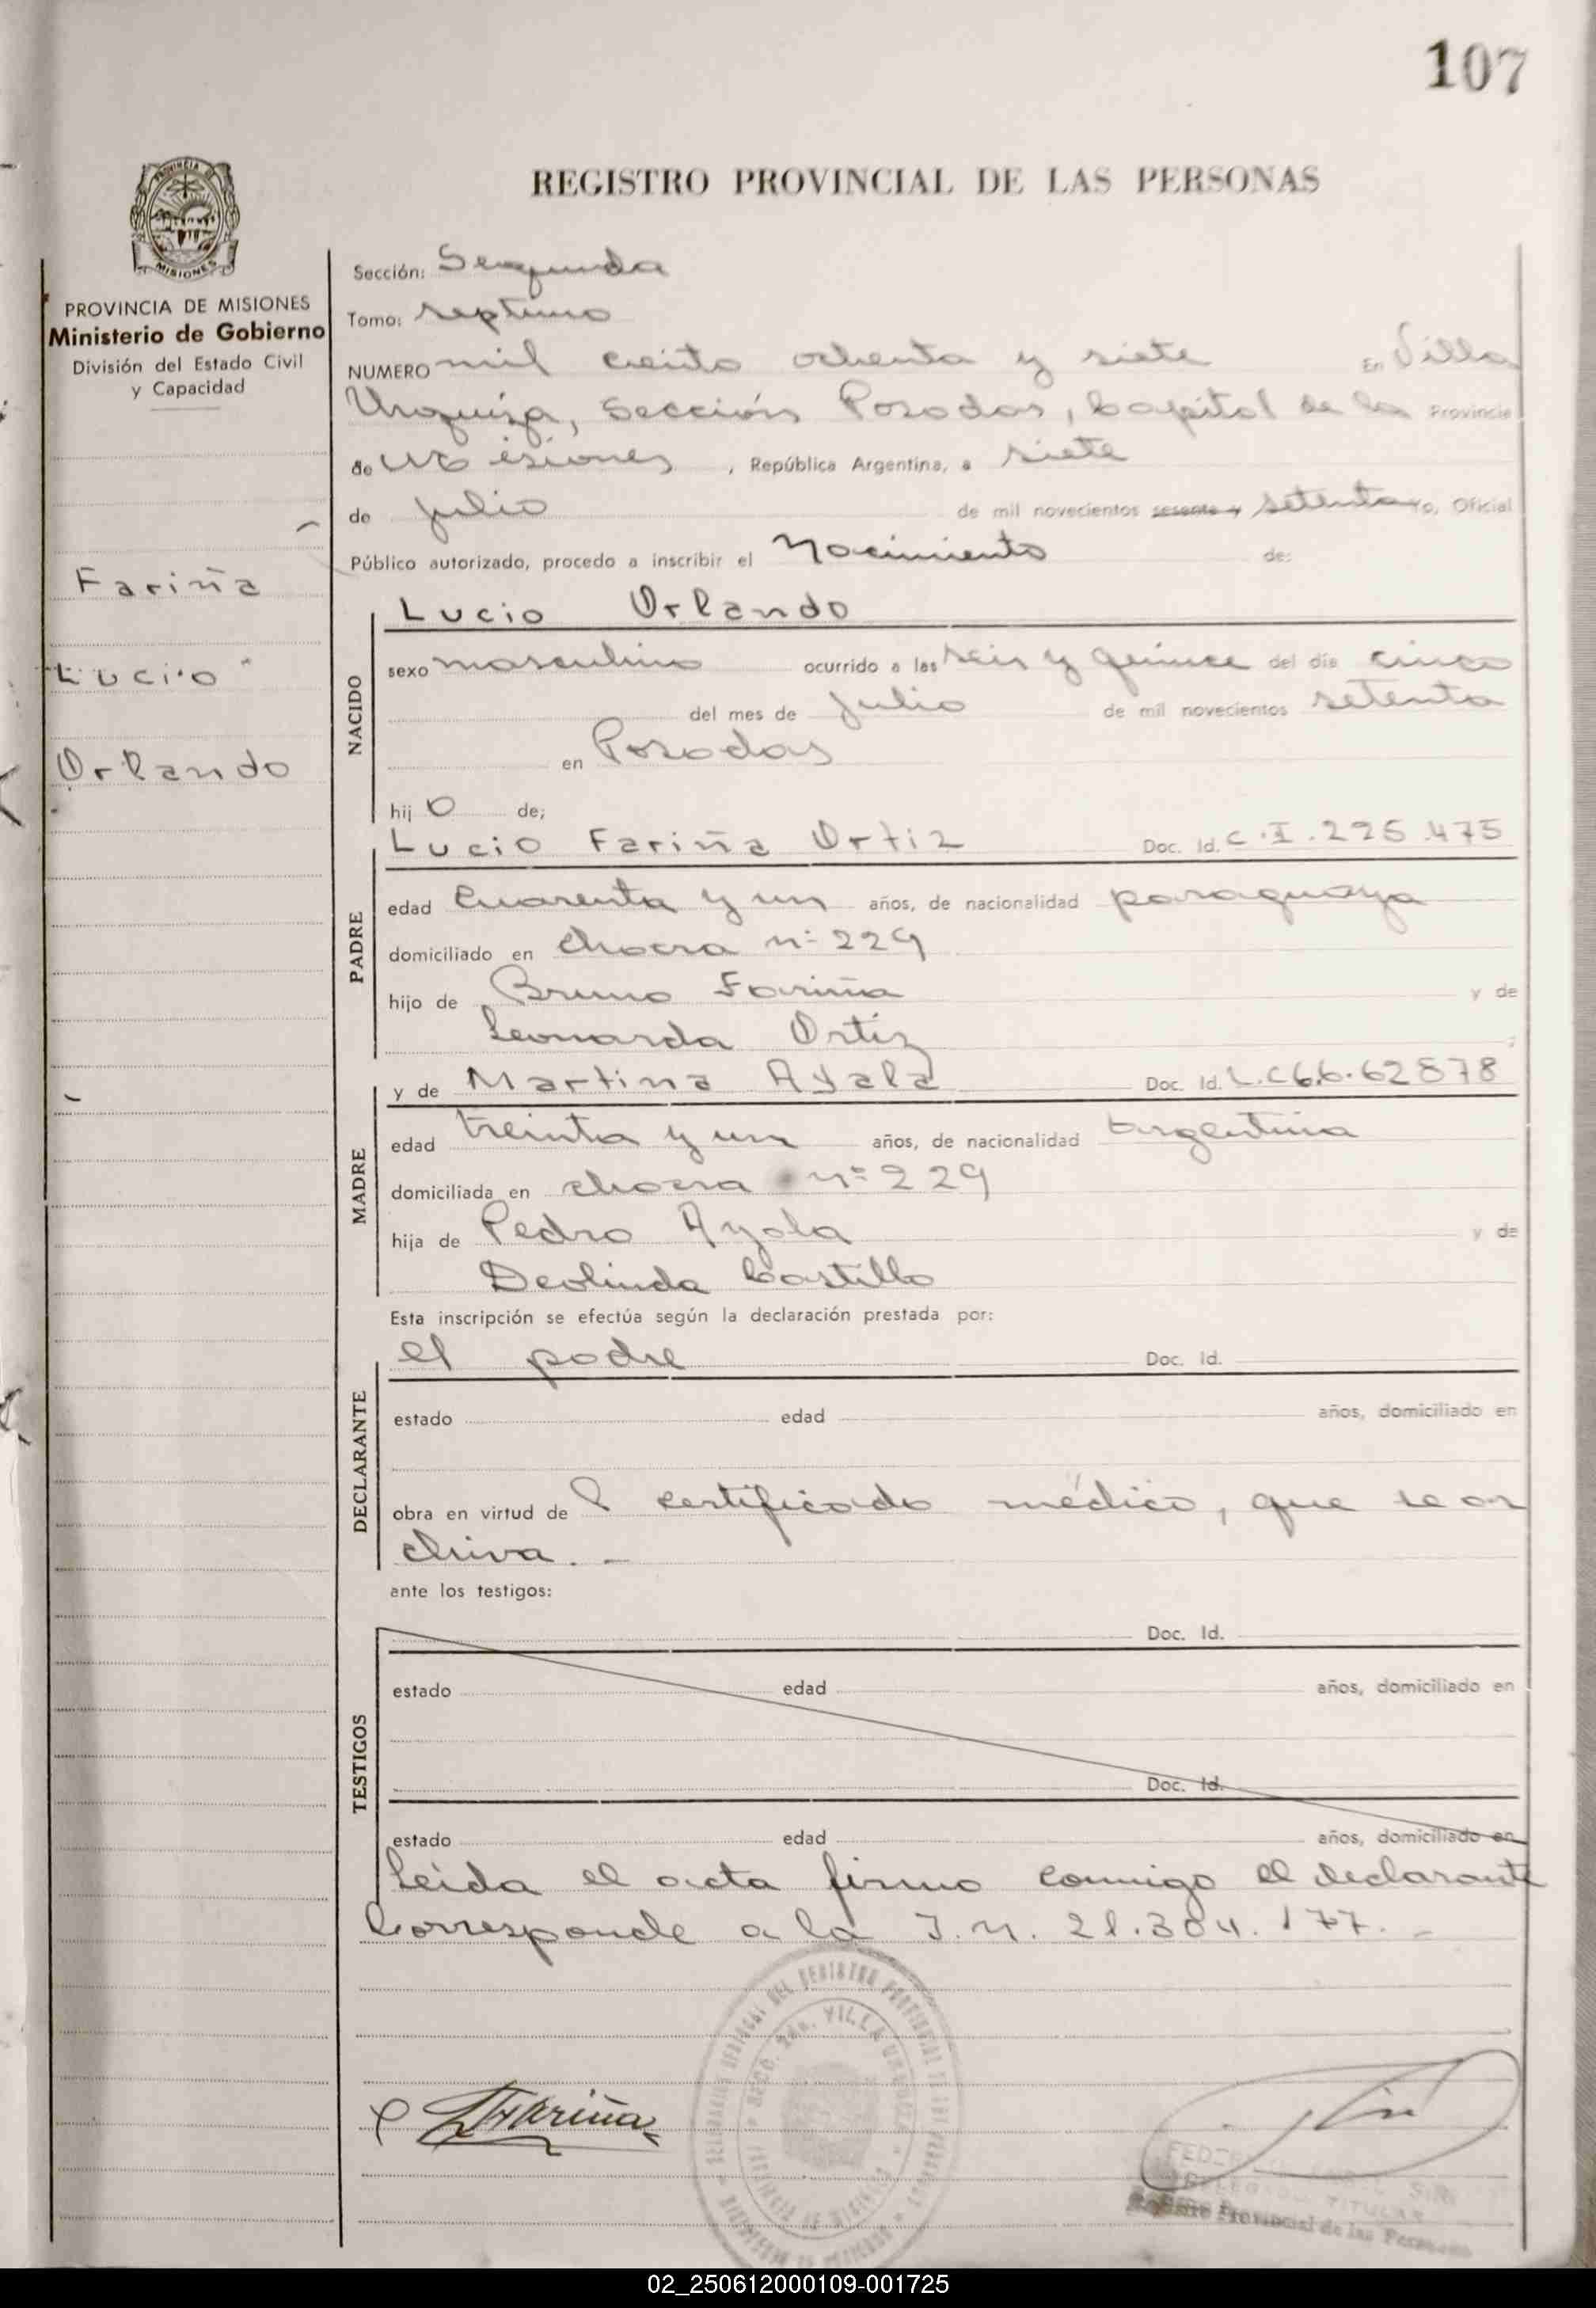 107
REGISTRO PROVINCIAL DE LAS PERSONAS
PROVINCIA
MISIONES
PROVINCIA DE MISIONES
Ministerio de Gobierno
División del Estado Civil
y Capacidad
Fariña
Lucio
Orlando
Sección: Segunda
Tomo: septimo
NUMERO mil ciento ochenta y siete En Villa
Urquiza, Sección Posadas, Capital de la Provincia
de Misiones, República Argentina, a siete
de julio de mil novecientos sesenta y setenta yo, Oficial
Público autorizado, procedo a inscribir el Nacimiento de:
Lucio Orlando
NACIDO
sexo masculino ocurrido a las seis y quince del día cinco
del mes de Julio de mil novecientos setenta
en Posadas
hijo de;
Lucio Fariña Ortiz Doc. Id. C.I. 225.475
PADRE
edad Cuarenta y un años, de nacionalidad paraguaya
domiciliado en chacra n° 229
hijo de Bruno Fariña y de
Leonarda Ortiz ;
y de Martina Ayala Doc. Id. L.C 6.6.62878
MADRE
edad treinta y un años, de nacionalidad argentina
domiciliada en chacra n° 229
hija de Pedro Ayala y de
Deolinda Castillo
Esta inscripción se efectúa según la declaración prestada por:
el padre Doc. Id.
DECLARANTE
estado edad años, domiciliado en
obra en virtud de l certificado médico, que se ar
chiva. -
ante los testigos:
Doc. Id.
TESTIGOS
estado edad años, domiciliado en
Doc. Id.
estado edad años, domiciliado en
Leida el acta firma conmigo el declarante
Corresponde a la I.N. 21.304.177. -
VILLA URQUIZA
Fariña
TITULAR
Registro Provincial de las Personas
02_250612000109-001725